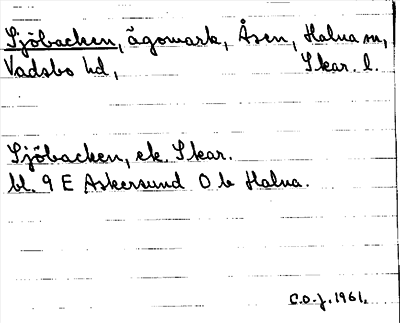 Sjöbacken, ägomark, Åsen, Halna sn,
Vadsbo hd, Skar. l.
Sjöbacken, ek. Skar.
bl. 9 E Askersund O b Halna.
C.O.J. 1961.